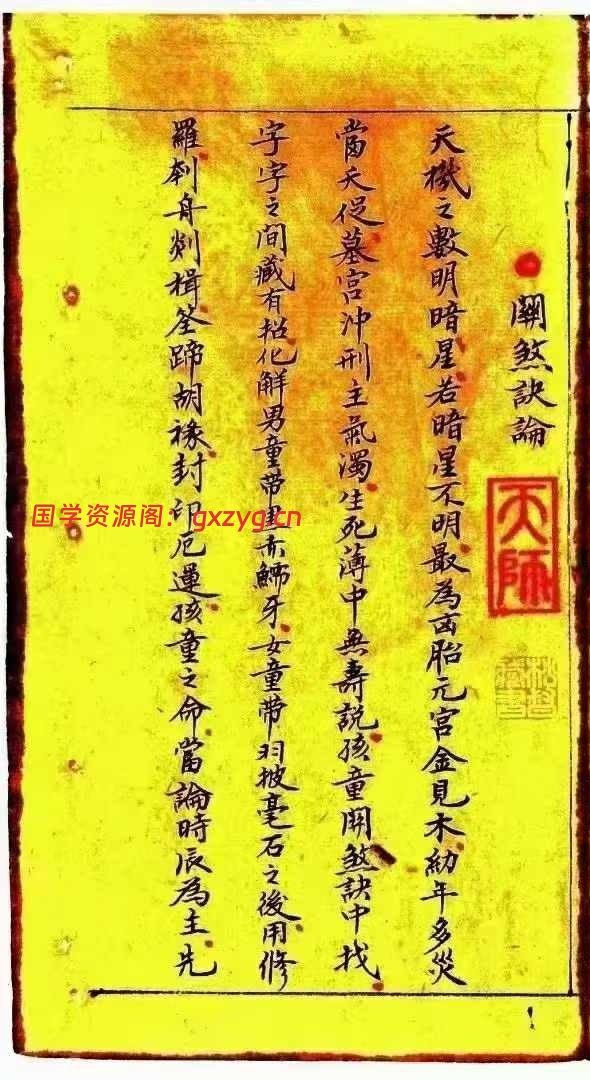 關煞訣論
天師
天機之數明暗星若暗星不明最為凶胎元宮金見木幼年多災
當夭促墓宮沖刑主氣濁生死薄中無壽說孩童關煞訣中找
字字之間藏有招化解男童帶 赤鱬牙女童帶羽披毫石之後用修
羅刹舟剡楫筌蹄胡祿封印厄運孩童之命當論時辰為主先
国学资源阁：gxzyg.cn